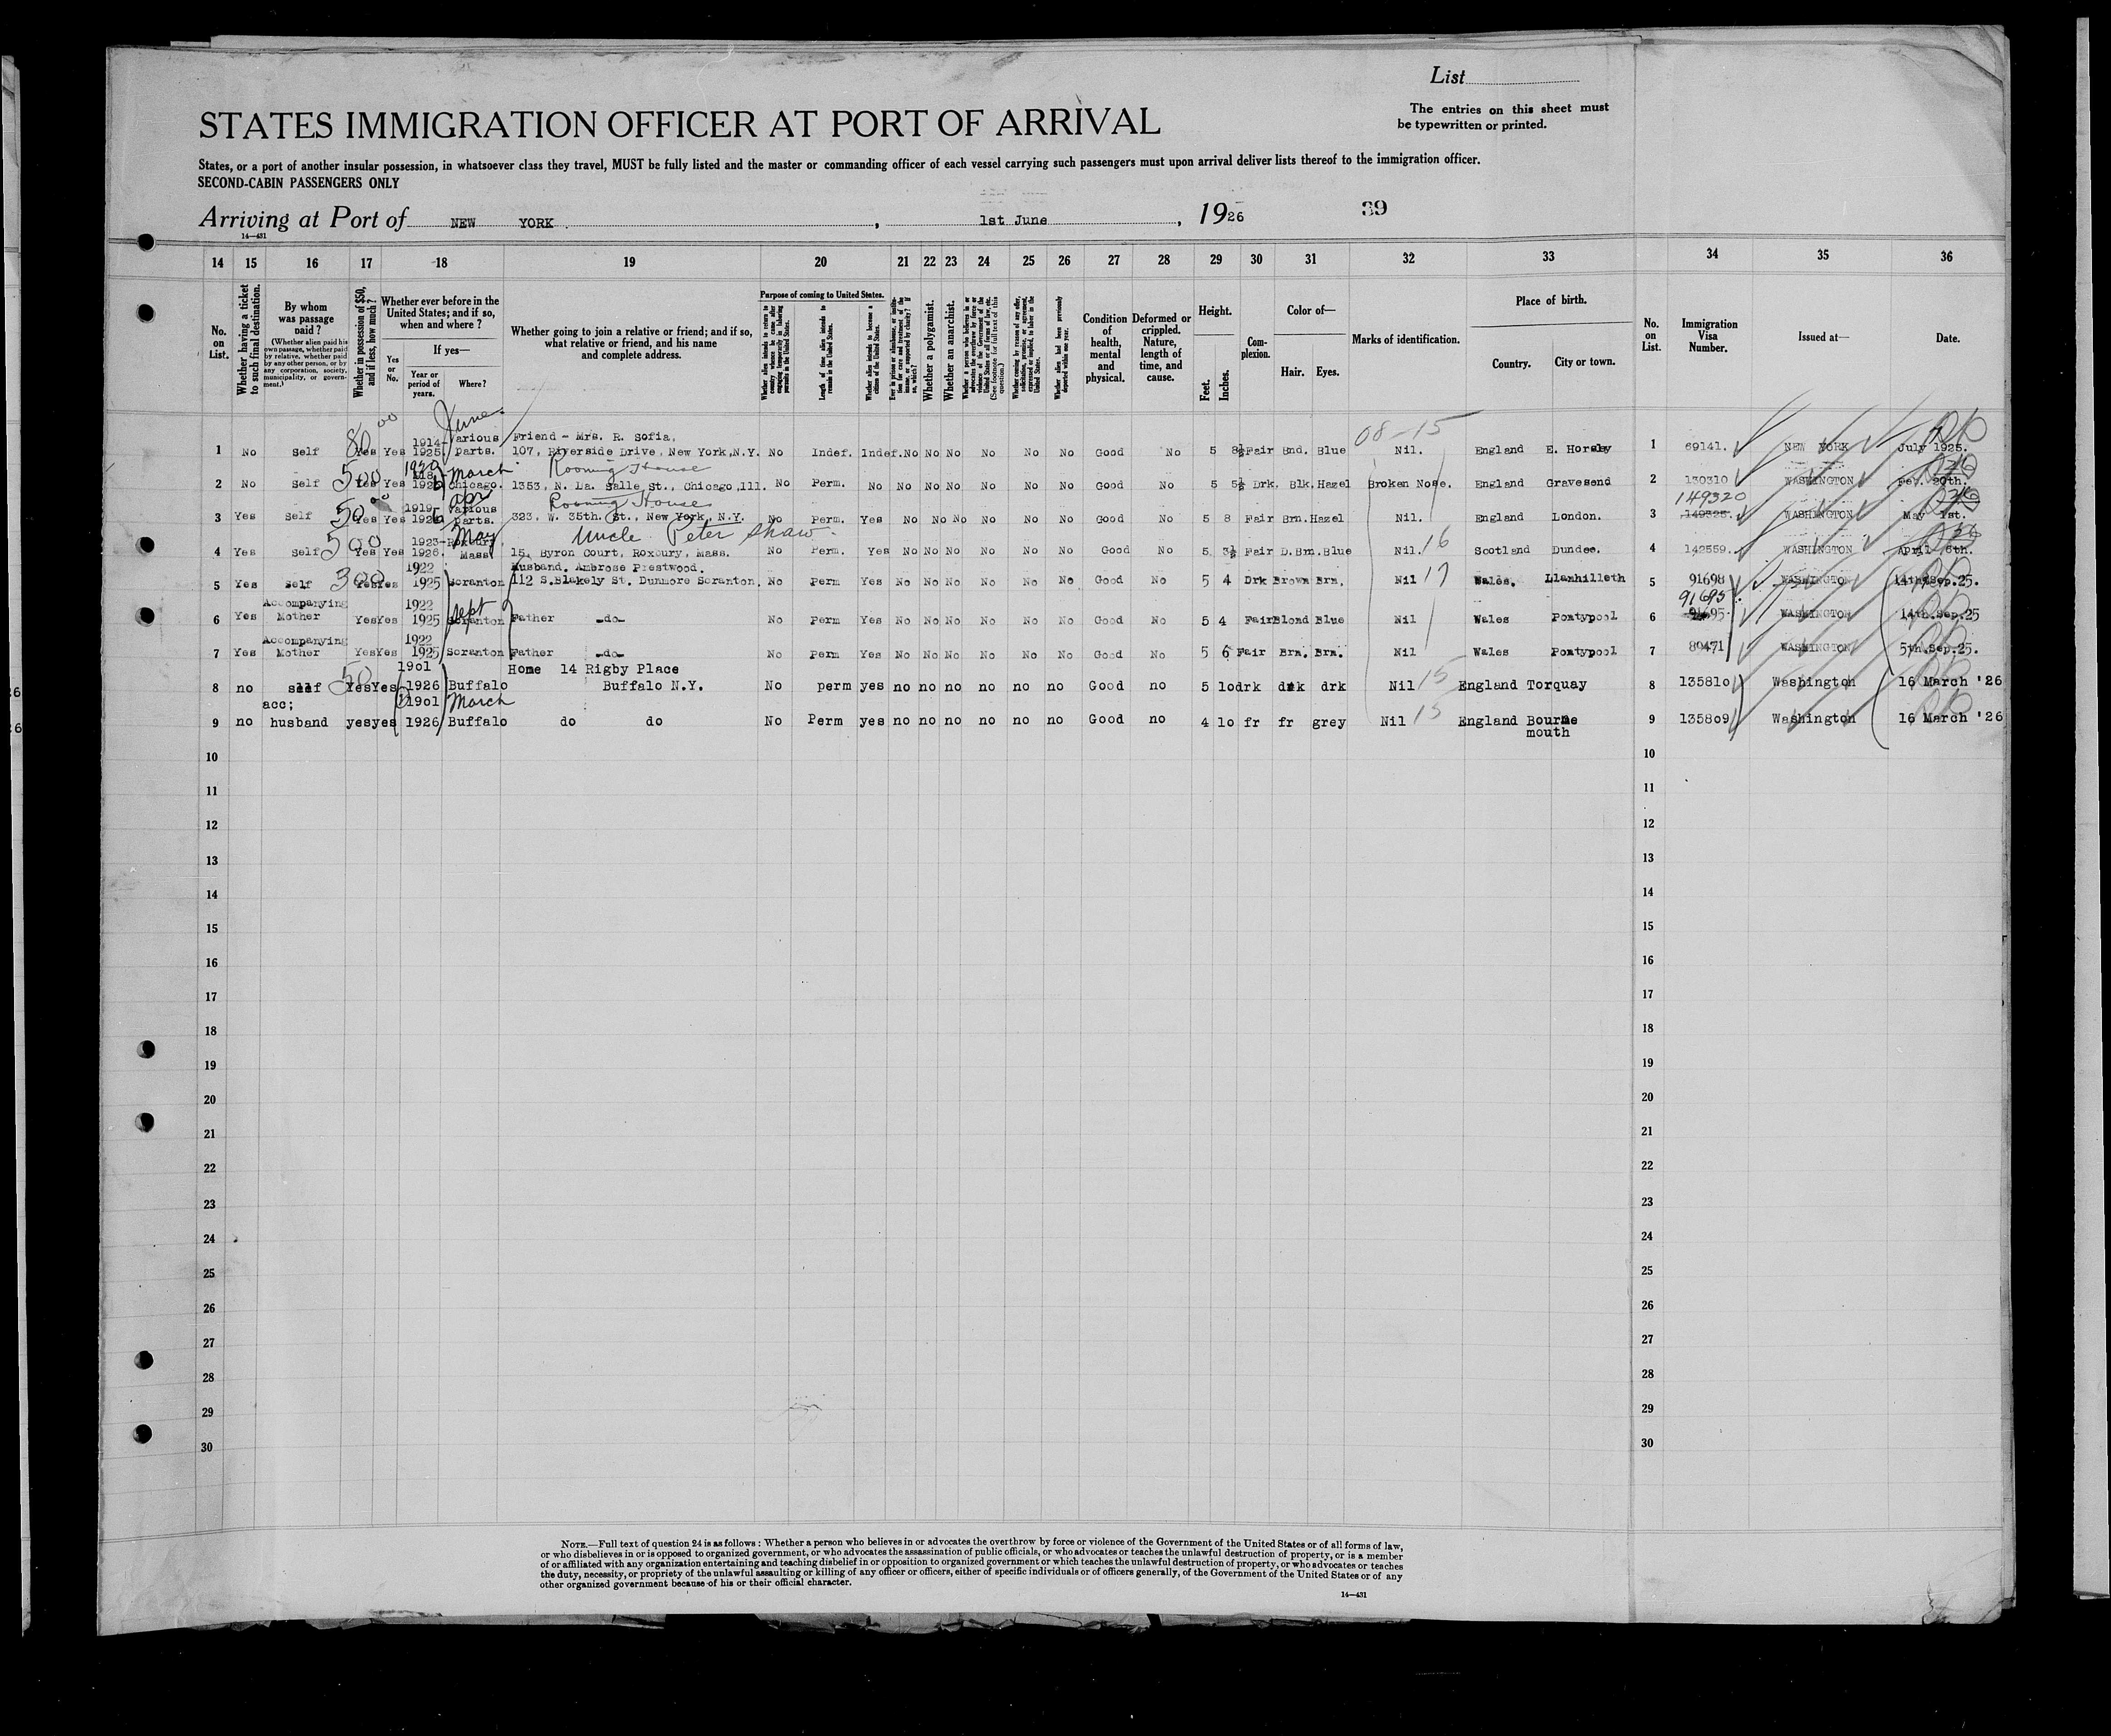 List
The entries on this sheet must
be typewritten or printed.
STATES IMMIGRATION OFFICER AT PORT OF ARRIVAL
States, or a port of another insular possession, in whatsoever class they travel, MUST be fully listed and the master or commanding officer of each vessel carrying such passengers must upon arrival deliver lists thereof to the immigration officer.
SECOND-CABIN PASSENGERS ONLY
Arriving at Port of NEW YORK, 1st June, 1926 39
14—431
14 15 16 17 18 19 20 21 22 23 24 25 26 27 28 29 30 31 32 33 34 35 36
No. on List.
Whether having a ticket to such final destination.
By whom was passage paid?
(Whether alien paid his own passage, whether paid by relative, whether paid by any other person, or by any corporation, society, municipality, or government.)
Whether in possession of $50, and if less, how much?
Whether ever before in the United States; and if so, when and where?
Yes or No.
If yes—
Year or period of years.
Where?
Whether going to join a relative or friend; and if so, what relative or friend, and his name and complete address.
Purpose of coming to United States.
Whether alien intends to return to country whence he came after engaging temporarily in laboring pursuits in the United States.
Length of time alien intends to remain in the United States.
Whether alien intends to become a citizen of the United States.
Whether a polygamist.
Whether an anarchist.
Condition of health, mental and physical.
Deformed or crippled. Nature, length of time, and cause.
Height.
Feet. Inches.
Complexion.
Color of—
Hair. Eyes.
Marks of identification.
Place of birth.
Country. City or town.
No. on List.
Immigration Visa Number.
Issued at—
Date.
June
08-15
1 No Self 80 00 Yes Yes 1914-1925. Various parts. Friend - Mrs. R. Sofia, 107, Riverside Drive, New York, N.Y. No Indef. Indef. No No No No No No Good No 5 8½ Fair Bnd. Blue Nil. England E. Horsley 1 69141. NEW YORK July 1925.
2 No Self 500 Yes Yes 1926 March Chicago. Rooming House 1353, N. La. Salle St., Chicago, Ill. No Perm. No No No No No No No Good No 5 5½ Drk. Blk. Hazel Broken Nose. England Gravesend 2 130310 WASHINGTON 20th.
3 Yes Self 50 00 Yes Yes 1919 1926 Apr Various parts. Rooming House 323, W. 35th. St., New York, N.Y. No Perm. Yes No No No No No No Good No 5 8 Fair Brn. Hazel Nil. England London. 3 149320 WASHINGTON May 1st.
4 Yes Self 500 Yes Yes 1923-1926. May Roxbury, Mass Uncle Peter Shaw 15, Byron Court, Roxbury, Mass. No Perm. Yes No No No No No No Good No 5 3½ Fair D.Brn. Blue Nil. 16 Scotland Dundee. 4 142559. WASHINGTON April 6th.
5 Yes Self 300 Yes Yes 1922 1925 Scranton Husband. Ambrose Prestwood. 112 S.Blakely St. Dunmore Scranton. No Perm Yes No No No No No No Good No 5 4 Drk Brown Brn. Nil 17 Wales. Llanhilleth 5 91698 WASHINGTON 14th.Sep.25.
6 Yes Accompanying Mother Yes Yes 1922 1925 Sept Scranton Father -do- No Perm Yes No No No No No No Good No 5 4 Fair Blond Blue Nil Wales Pontypool 6 91695 WASHINGTON 14th.Sep.25
7 Yes Accompanying Mother Yes Yes 1922 1925 Scranton Father -do- No Perm Yes No No No No No No Good No 5 6 Fair Brn. Brn. Nil Wales Pontypool 7 89471 WASHINGTON 5th.Sep.25.
8 no self 50 Yes Yes 19o1 1926 Buffalo Home 14 Rigby Place Buffalo N.Y. No perm yes no no no no no no Good no 5 1o drk drk drk Nil 15 England Torquay 8 13581o Washington 16 March '26
9 no acc; husband yes yes 19o1 1926 March Buffalo do do No Perm yes no no no no no no Good no 4 1o fr fr grey Nil 15 England Bournemouth 9 1358o9 Washington 16 March '26
10 10
11 11
12 12
13 13
14 14
15 15
16 16
17 17
18 18
19 19
20 20
21 21
22 22
23 23
24 24
25 25
26 26
27 27
28 28
29 29
30 30
NOTE.—Full text of question 24 is as follows: Whether a person who believes in or advocates the overthrow by force or violence of the Government of the United States or of all forms of law,
or who disbelieves in or is opposed to organized government, or who advocates the assassination of public officials, or who advocates or teaches the unlawful destruction of property, or is a member
of or affiliated with any organization entertaining and teaching disbelief in or opposition to organized government or which teaches the unlawful destruction of property, or who advocates or teaches
the duty, necessity, or propriety of the unlawful assaulting or killing of any officer or officers, either of specific individuals or of officers generally, of the Government of the United States or of any
other organized government because of his or their official character.
14—431